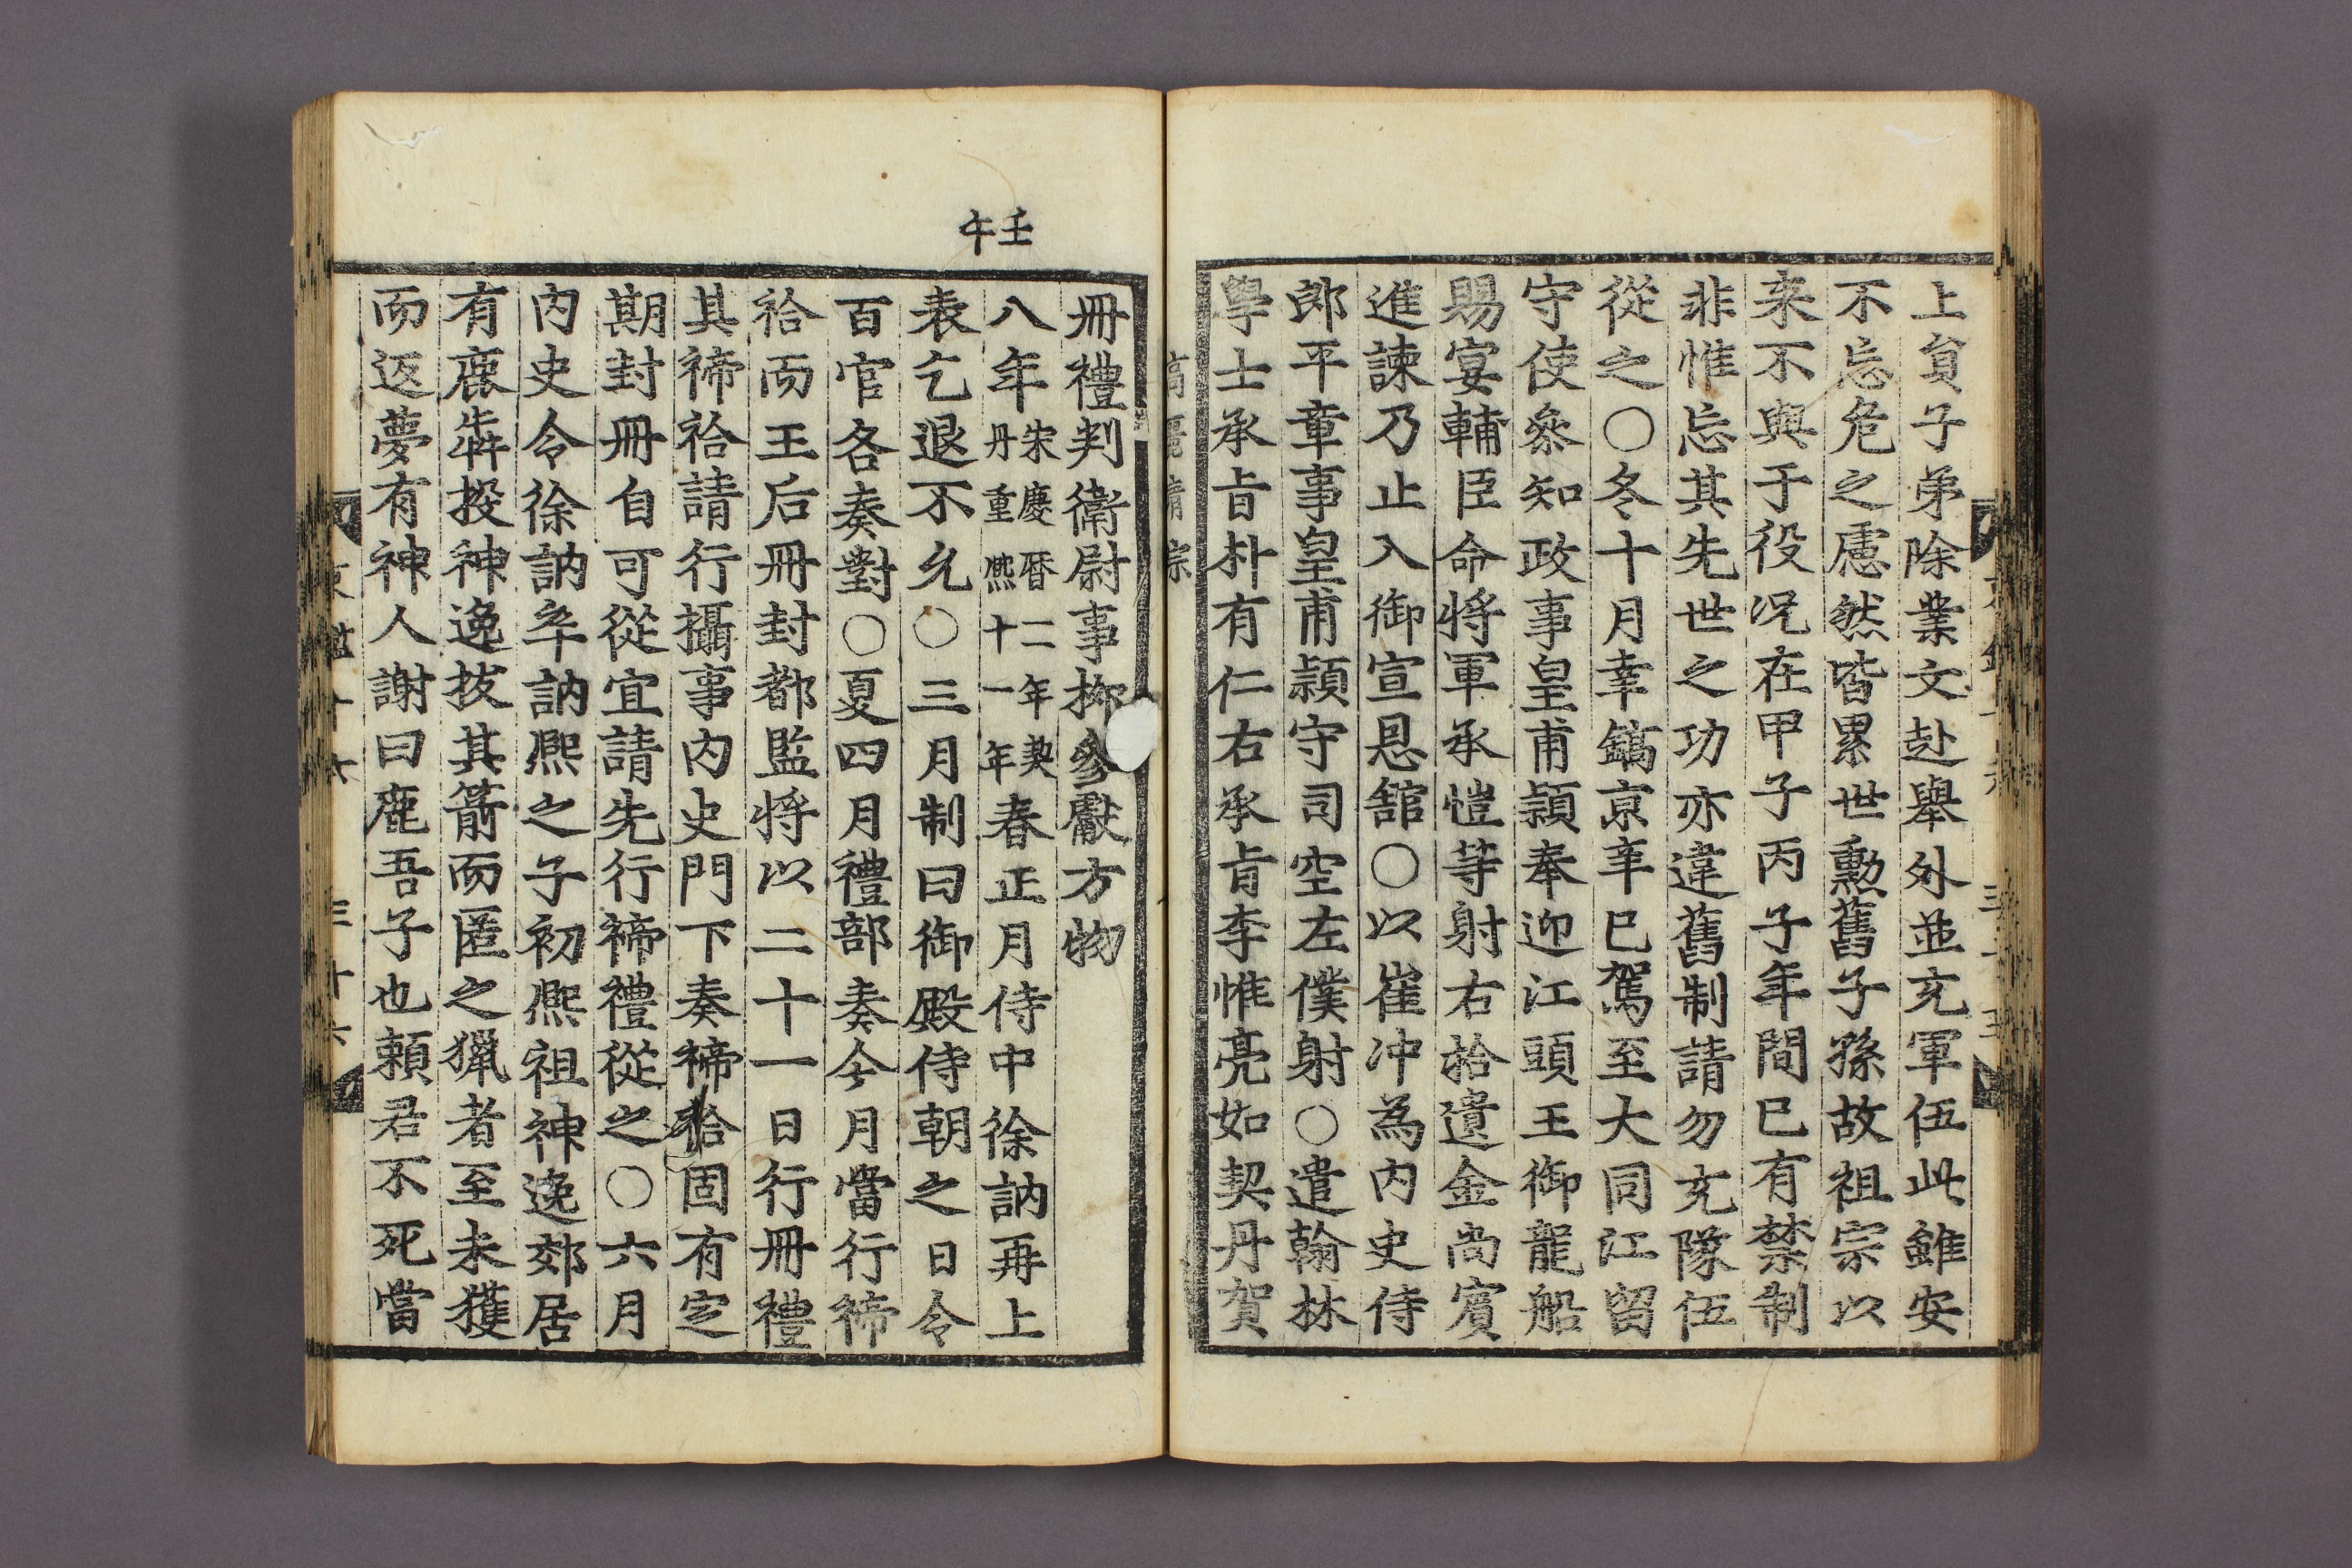 上貟子弟除業文赴擧外並充軍伍此雖安
不忘危之慮然皆累世勲舊子孫故祖宗以
来不與于役况在甲子丙子年間已有禁制
非惟忘其先世之功亦違舊制請勿充隊伍
從之○冬十月幸鎬京辛巳駕至大同江留
守使叅知政事皇甫頴奉迎江頭王御龍船
賜宴輔臣命將軍承愷等射右拾遺金尚賔
進諫乃止入御宣恩舘○以崔冲為内史侍
郎平章事皇甫頴守司空左僕射○遣翰林
學士承旨朴有仁右承旨李惟亮如契丹賀
高麗靖宗
壬午
冊禮判衛尉事柳參獻方物
八年宋慶曆二年契丹重熈十一年春正月侍中徐訥再上
表乞退不允○三月制曰御殿侍朝之日令
百官各奏對○夏四月禮部奏今月當行禘
祫而王后冊封都監將以二十一日行冊禮
其禘祫請行攝事内史門下奏禘祫固有定
期封冊自可從宜請先行禘禮從之○六月
内史令徐訥卒訥熈之子初熈祖神逸郊居
有鹿犇投神逸拔其箭而匿之獵者至未獲
而返夢有神人謝曰鹿吾子也頼君不死當